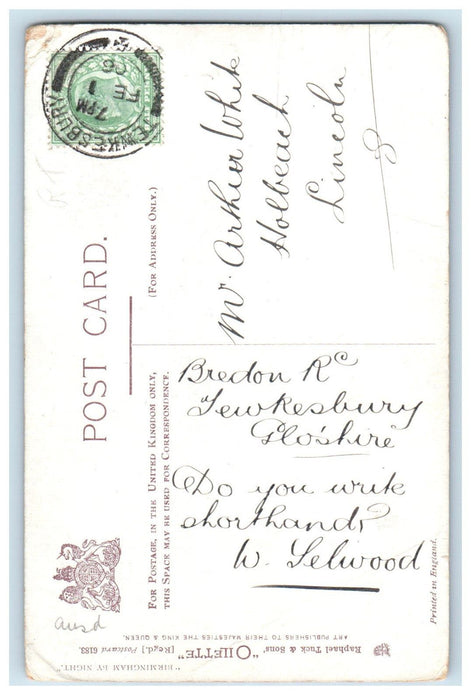 POST CARD.
(FOR ADDRESS ONLY.)
TEWKESBURY
7 PM
FE 1
Mr. Arthur White
Holbeach
Lincoln
FOR POSTAGE, IN THE UNITED KINGDOM ONLY,
THIS SPACE MAY BE USED FOR CORRESPONDENCE.
Bredon Rd
Tewkesbury
Glo'shire
Do you write
shorthand?
W. Selwood
Printed in England.
Raphael Tuck & Sons' "OILETTE" [Regd.] Postcard 6183.
ART PUBLISHERS TO THEIR MAJESTIES THE KING & QUEEN.
"BIRMINGHAM BY NIGHT."